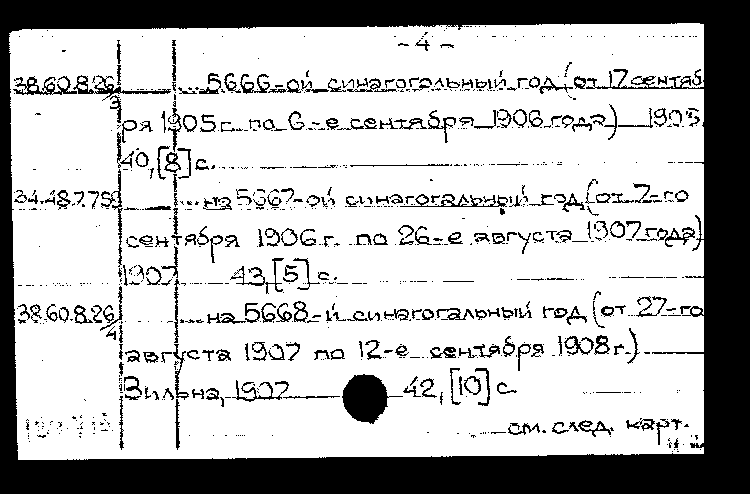 - 4 -
38.60.8.26/3 ... 5666-ой синагогольный год (от 17 сентяб-
ря 1905 г. по 6-е сентября 1906 года) 1905.
40, [8] с.
34.48.7.759 ... на 5667-ой синагогальный год (от 7-го
сентября 1906 г. по 26-е августа 1907 года)
1907 43, [5] с.
38.60.8.26/4 ... на 5668-й синагогальный год (от 27-го
августа 1907 по 12-е сентября 1908 г.)
Вильна, 1907 42, [10] с.
см. след. карт.